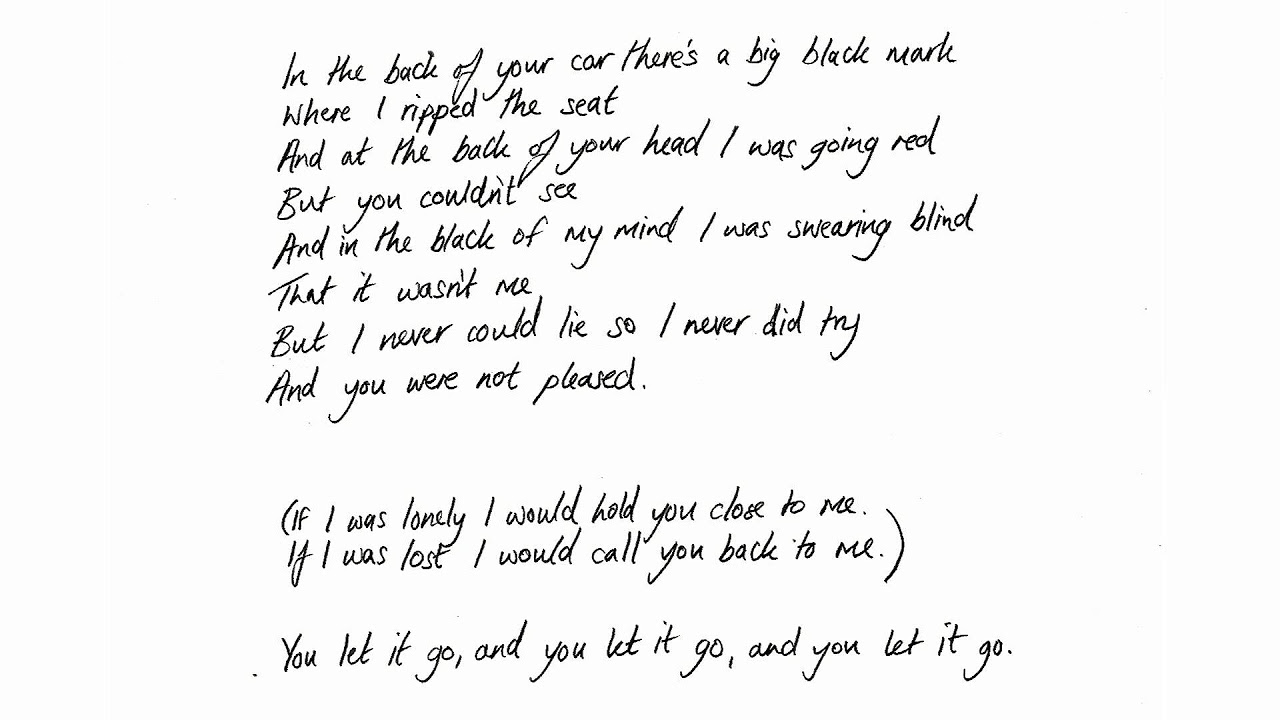 In the back of your car there's a big black mark
Where I ripped the seat
And at the back of your head I was going red
But you couldn't see
And in the black of my mind I was swearing blind
That it wasn't me
But I never could lie so I never did try
And you were not pleased.
(If I was lonely I would hold you close to me.
If I was lost I would call you back to me.)
You let it go, and you let it go, and you let it go.